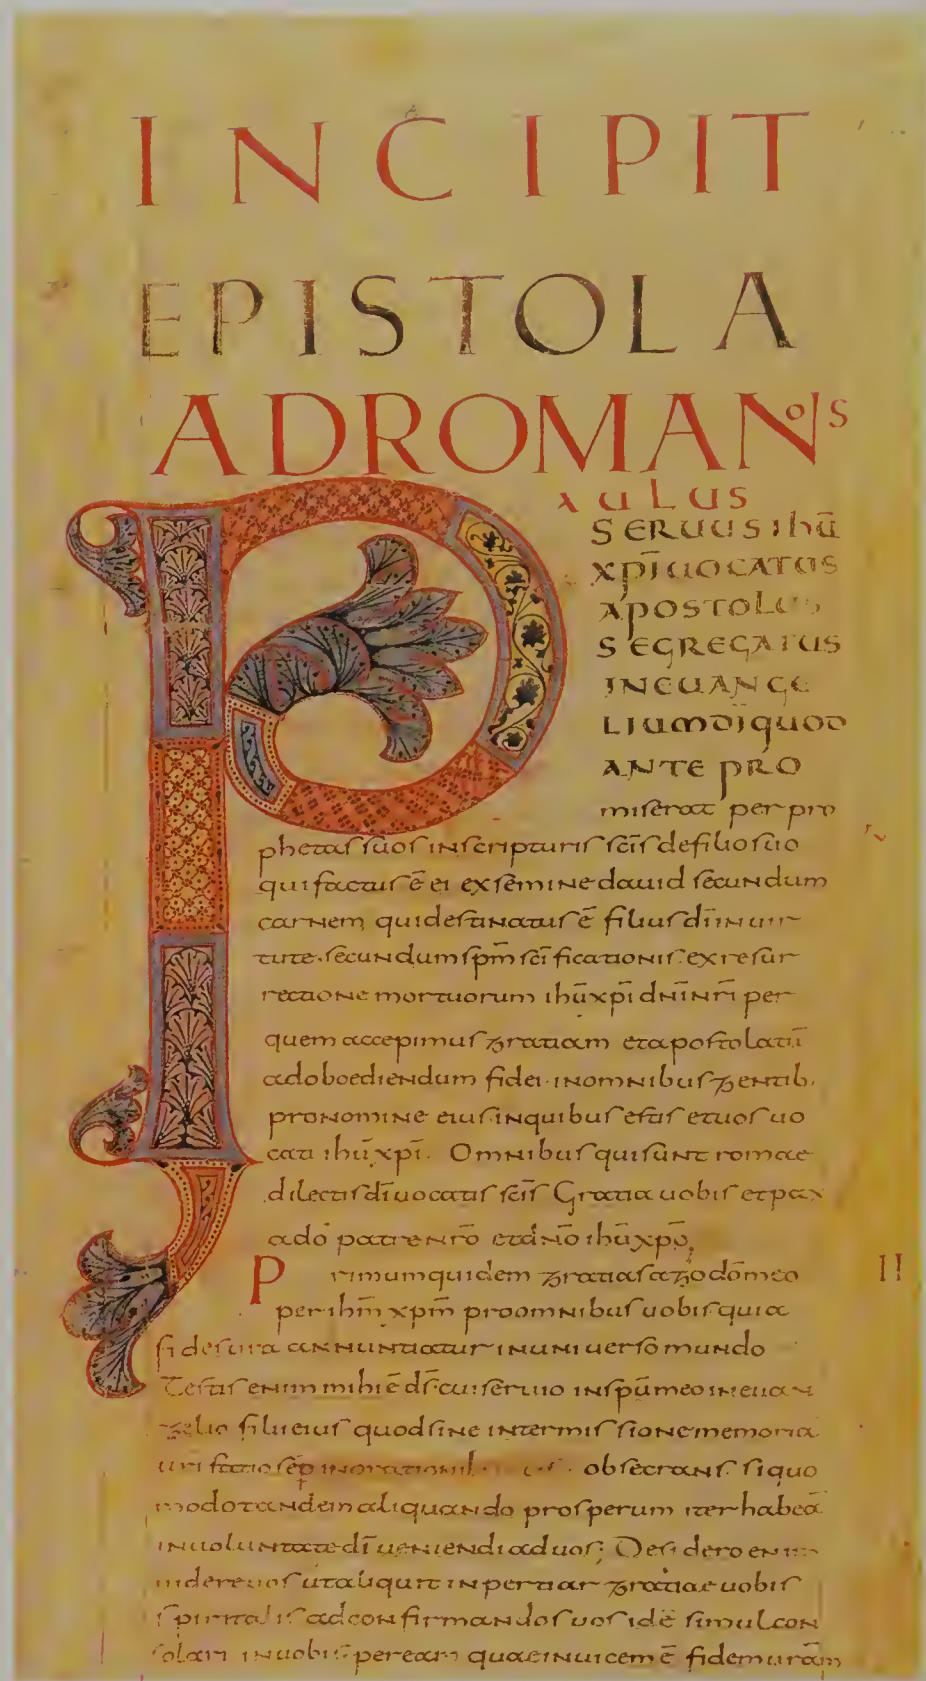 INCIPIT
EPISTOLA
ADROMANOS
PAULUS
SERUUS IHU̅
XPI̅ UOCATUS
APOSTOLUS
SEGREGATUS
INEUANGE
LIUMDI̅QUOD
ANTE PRO
miserat per pro
phetas suos inscripturis sc̅is defilio suo
qui factus e̅ ei exsemine dauid secundum
carnem, qui destinatus e̅ filius di̅ inuir
tute. secundum sp̅m sc̅ificationis. ex resur
rectione mortuorum ihu̅ xpi̅ dni̅ nri̅ per
quem accepimus gratiam et apostolatu̅
ad oboediendum fidei. in omnibus gentib.
pro nomine eius. in quibus estis et uos uo
cati ihu̅ xpi̅. Omnibus qui sunt romae
dilectis di̅ uocatis sc̅is Gratia uobis et pax
a do̅ patre nro̅ et dno̅ ihu̅ xpo̅,
Primum quidem gratias ago do̅ meo
per ihm̅ xpm̅ pro omnibus uobis quia
II
fides ura annuntiatur in uniuerso mundo
Testis enim mihi e̅ ds̅. cui seruio in spu̅ meo in euan
gelio filii eius quod sine intermissione memoria
uri facio sep̅ in orationib. obsecrans. si quo
modo tandem aliquando prosperum iter habea̅
in uoluntate di̅ ueniendi ad uos; Desidero enim
uidere uos ut aliquit inpertiar gratiae uobis
spiritalis ad confirmandos uos ide̅ simul con
solari in uobis. per eam quae inuicem e̅ fidem ura̅m